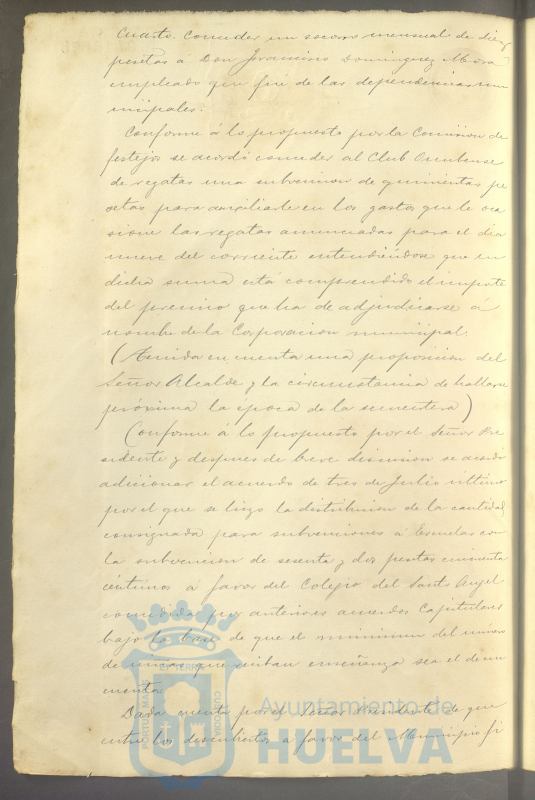 Cuarto. Conceder un socorro mensual de diez
pesetas à Don Francisco Dominguez Mora
empleado que fué de las dependencias mu
nicipales.
Conforme à lo propuesto por la Comision de
festejos se acordó conceder al Club Onubense
de regatas una subvencion de quinientas pe
setas para auxiliarle en los gastos que le oca
sione las regatas anunciadas para el dia
nueve del corriente entendiéndose que en
dicha suma está comprendido el importe
del premio que ha de adjudicarse à
nombre de la Corporacion municipal.
(Tenida en cuenta una proposicion del
Señor Alcalde y la circunstancia de hallarse
próxima la época de la sementera)
Conforme à lo propuesto por el Señor Pre
sidente y despues de breve discusion se acordó
adicionar el acuerdo de tres de Julio último
por el que se hizo la distribucion de la cantidad
consignada para subvenciones à Escuelas con
la subvencion de sesenta y dos pesetas cincuenta
céntimos à favor del Colegio del Santo Angel
concedida por anteriores acuerdos Capitulares
bajo la base de que el minimum del número
de niñas que reciban enseñanza sea el de cin
cuenta.
Dada cuenta por el Señor Presidente de que
entre los descubiertos a favor del Municipio fi
Ayuntamiento de
HUELVA
PORTUS MARIS
ET TERRE
CUSTODIA